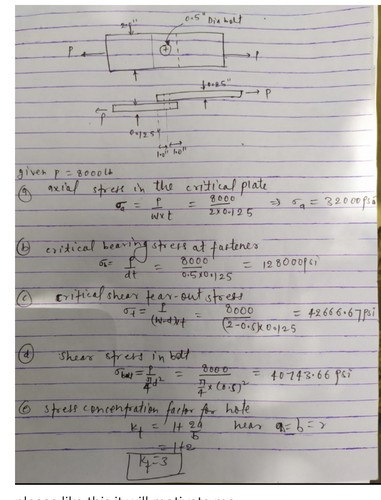 0.5" Dia bolt
P
P
0.25"
P
P
0.125"
1.0" 1.0"
given P = 8000 lb
(a) axial stress in the critical plate
σa = P/w×t = 8000/2×0.125 ⇒ σa = 32000 psi
(b) critical bearing stress at fastener
σb = P/dt = 8000/0.5×0.125 = 128000 psi
(c) critical shear tear-out stress
σt = P/(w-d)×t = 8000/(2-0.5)×0.125 = 42666.67 psi
(d) shear stress in bolt
= P/π/4 d² = 8000/π/4 × (0.5)² = 40743.66 psi
(e) stress concentration factor for hole
Kt = 1+ 2a/b hear a = b = r
= 1+2
Kt = 3
please like this it will motivate me